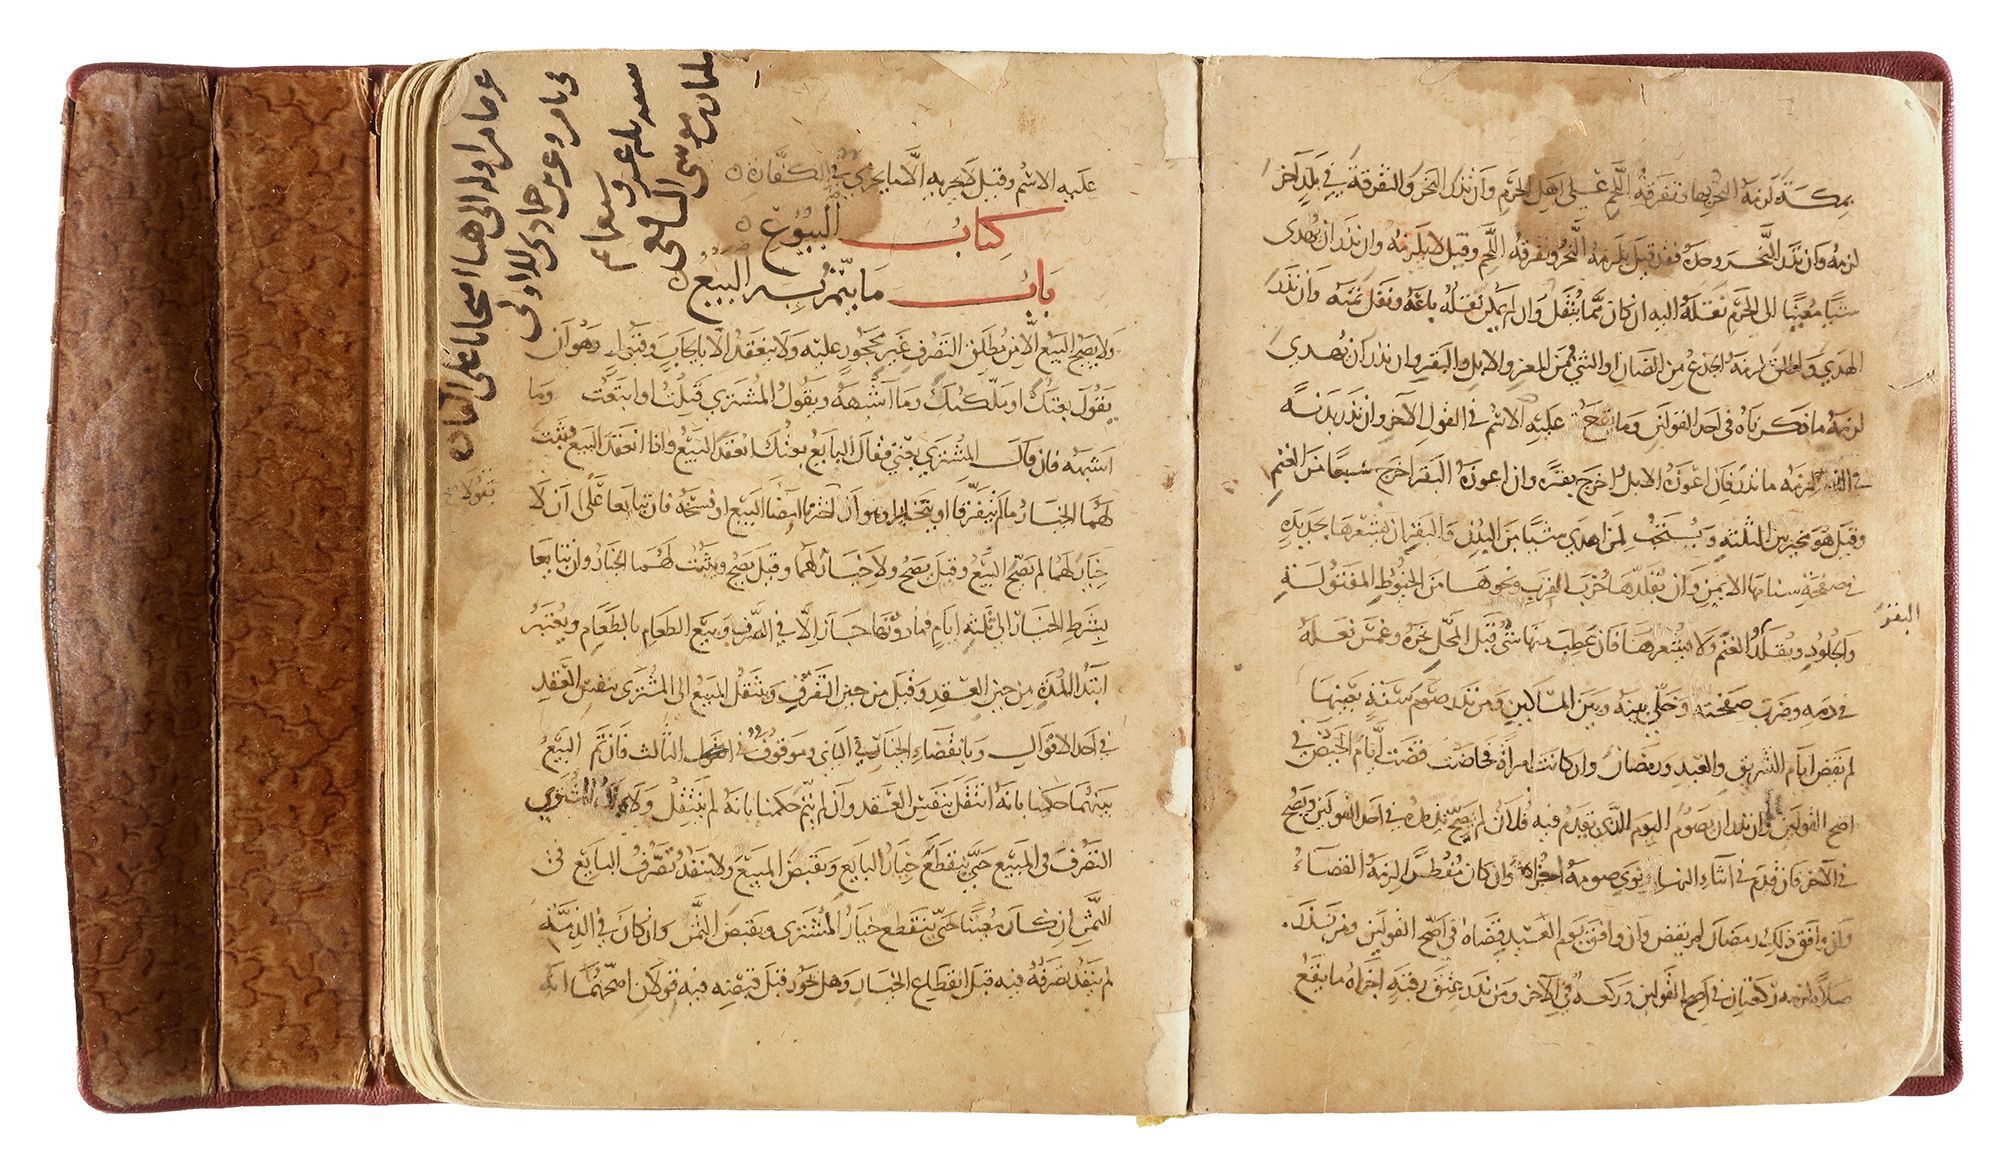 بمكة لزمه النحر بها وتفرقة اللحم على اهل الحرم وان نذر النحر والتفرقة في بلد اخر
لزمه وان نذر النحر وحده فقد قيل يلزمه النحر وتفرقة اللحم وقيل لا يلزمه وان نذر ان يهدى
شيأ معينا الى الحرم نقله اليه ان كان مما ينقل وان لم يمكن نقله باعه ونقل ثمنه وان نذر
الهدي واطلق لزمه الجذع من الضان او الثني من المعز والابل والبقر وان نذر ان يهدي
لزمه ما ذكرناه في احد القولين وما يقع عليه الاسم في القول الاخر وان نذر بدنة
في الذمة لزمه ما نذر فان اعوزه الابل اخرج بقرة وان اعوزه البقر اخرج سبعا من الغنم
وقيل هو مخير بين الثلثة ويستحب لمن اهدى شيأ من البدن والبقر ان يشعرها بحديدة
في صفحة سنامها الايمن وان يقلدها خرب القرب ونحوها من الخيوط المفتولة
والجلود ويقلد الغنم ولا يشعرها فان عطب منها شي قبل المحل نحره وغمس نعله
البقر
في دمه وضرب صفحته وخلى بينه وبين المساكين ومن نذر صوم سنة بعينها
لم يقض ايام التشريق والعيد ورمضان وان كانت امراة فحاضت قضت ايام الحيض في
اصح القولين وان نذر ان يصوم اليوم الذي يقدم فيه فلان لم يصح نذره في احد القولين ويصح
في الآخر فان قدم في اثناء النهار نوى صومه اجزاه وان كان مفطرا لزمه القضاء
وان وافق ذلك رمضان لم يقض وان وافق يوم العيد قضاه في اصح القولين ومن نذر
صلاة لزمه ركعتان في اصح القولين وركعة في الآخر ومن نذر عتق رقبة اجزاه ما يقع
عليه الاسم وقيل لا يجزيه الا ما يجزي في الكفارة
كتاب البيوع
باب ما يتم به البيع
ولا يصح البيع الا من مطلق التصرف غير محجور عليه ولا ينعقد الا بايجاب وقبول وهو ان
يقول بعتك او ملكتك وما اشبهه ويقول المشتري قبلت او ابتعت وما
اشبهه فان قال المشتري بعني فقال البايع بعتك انعقد البيع واذا انعقد البيع ثبت
لهما الخيار ما لم يتفرقا او يتخايرا وهو ان يقولا اخترنا امضا البيع او فسخه فان تبايعا على ان لا
يقولا
خيار لهما لم يصح البيع وقيل يصح ولا خيار لهما وقيل يصح ويثبت لهما الخيار وان تبايعا
بشرط الخيار الى ثلثة ايام فما دونها جاز الا في الصرف وبيع الطعام بالطعام ويعتبر
ابتدا المدة من حين العقد وقيل من حين التفرق وينتقل المبيع الى المشتري بنفس العقد
في احد الاقوال وبانقضاء الخيار في الثاني وموقوف في الثالث فان تم البيع
بينهما حكمنا بانه انتقل بنفس العقد وان لم يتم حكمنا بانه لم ينتقل ولا يملك المشتري
التصرف في المبيع حتى ينقطع خيار البايع ويقبض المبيع ولا ينفذ تصرف البايع في
الثمن ان كان معينا حتى ينقطع خيار المشتري ويقبض الثمن وان كان في الذمة
لم ينفذ تصرفه فيه قبل انقطاع الخيار وهل يجوز قبل قبضه فيه قولان اصحهما انه